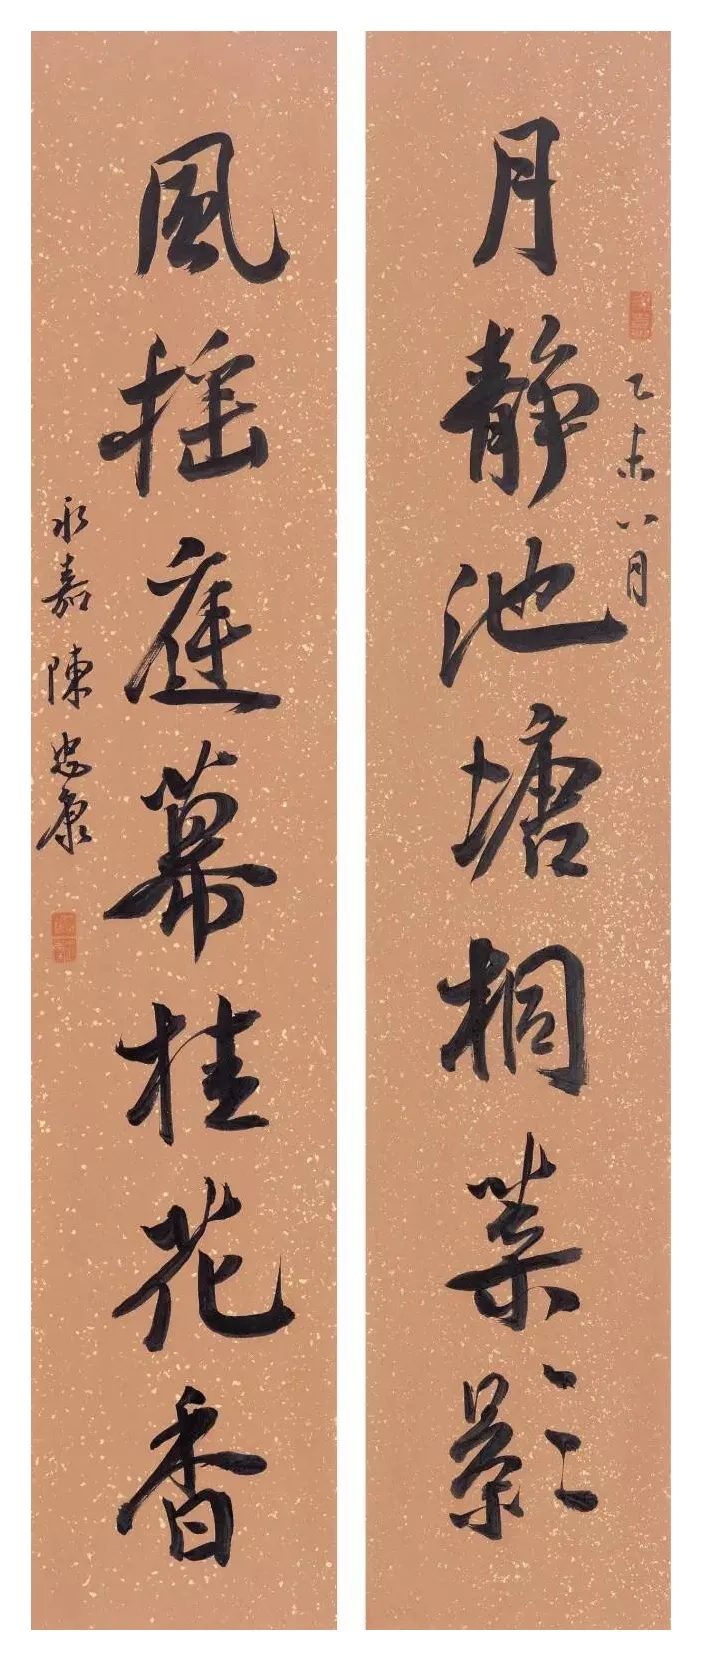 乙未八月
月靜池塘桐葉影
風摇庭幕桂花香
永嘉陳忠康